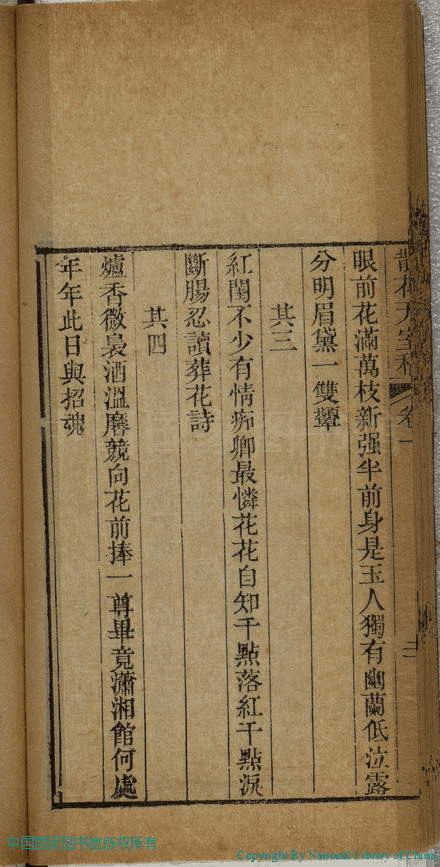 散花天室稿 卷一
眼前花滿萬枝新强半前身是玉人獨有幽蘭低泣露
分明眉黛一雙顰
其三
紅閨不少有情痴卿最憐花花自知千點落紅千點淚
斷腸忍讀葬花詩
其四
爐香微裊酒溫磨競向花前捧一尊畢竟瀟湘館何處
年年此日與招魂
中国国家图书馆版权所有
Copyright By National Library of China